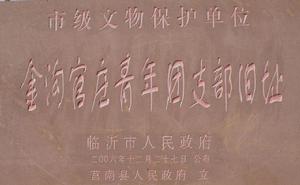 市级文物保护单位
金沟官庄青年团支部旧址
临沂市人民政府
二〇〇六年十二月二十七日 公布
莒南县人民政府 立